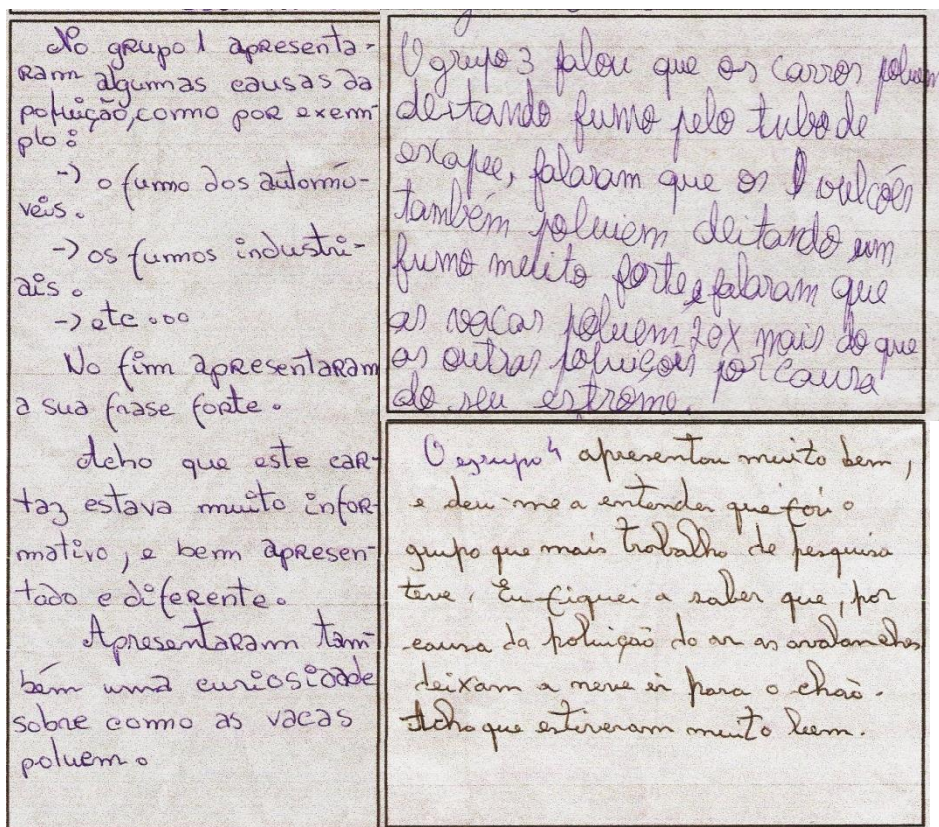 No grupo 1 apresenta-
ram algumas causas da
poluição, como por exem
plo:
-) o fumo dos automó-
veis.
-) os fumos industri-
ais.
-) etc...
No fim apresentaram
a sua frase forte.
Acho que este car-
taz estava muito infor-
mativo, e bem apresen-
tado e diferente.
Apresentaram tam-
bém uma curiosidade
sobre como as vacas
poluem.
O grupo 3 falou que os carros poluem
deitando fumo pelo tubo de
escape, falaram que os vulcões
também poluiem deitando um
fumo muito forte, e falaram que
as vacas poluem 20x mais do que
as outras poluiçois por causa
do seu estrome.
O grupo 4 apresentou muito bem,
e deu-me a entender que foi o
grupo que mais trabalho de pesquisa
teve. Eu fiquei a saber que, por
causa da poluição do ar as avalanches
deixam a neve ir para o chão.
Acho que estiveram muito bem.